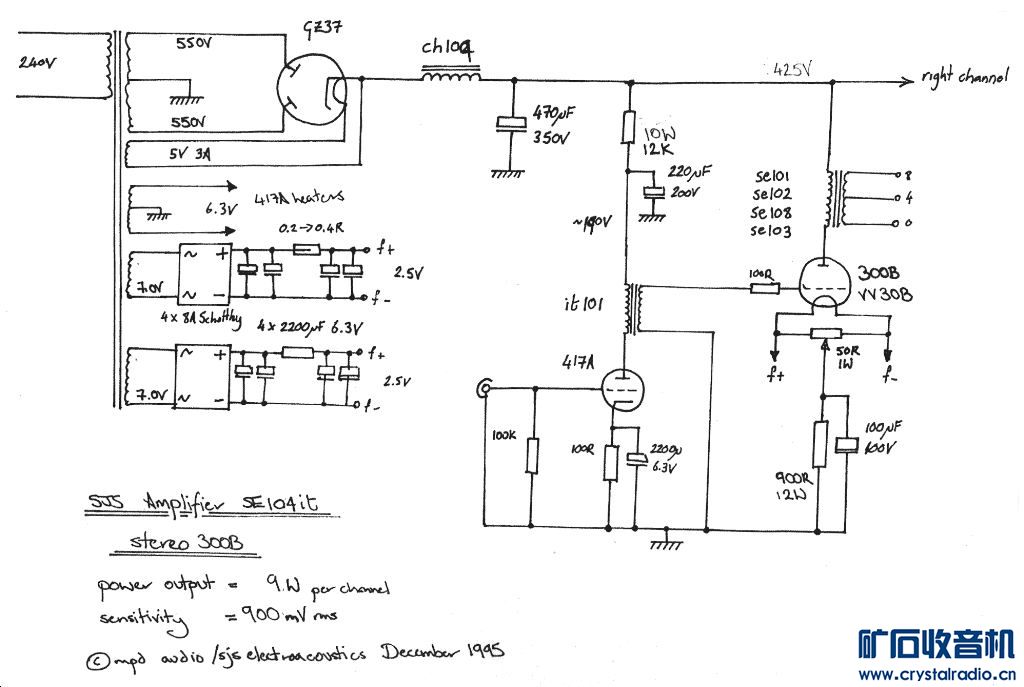 GZ37
550V
240V
ch104
425V
right channel
550V
470µF
350V
10W
12K
5V 3A
220µF
200V
se101
se102
se108
se103
8
4
0
417A heaters
6.3V
0.2→0.4R
f+
2.5V
7.0V
f-
4 x 8A Schottky
4 x 2200µF 6.3V
it101
100R
300B
VV30B
50R
1W
f+
f-
417A
f+
2.5V
7.0V
f-
100K
100R
2200µ
6.3V
100µF
100V
900R
12W
SJS Amplifier SE104it
stereo 300B
power output = 9.W per channel
sensitivity = 900 mV rms
© mpd audio /sjs electroacoustics December 1995
矿石收音机
www.crystalradio.cn